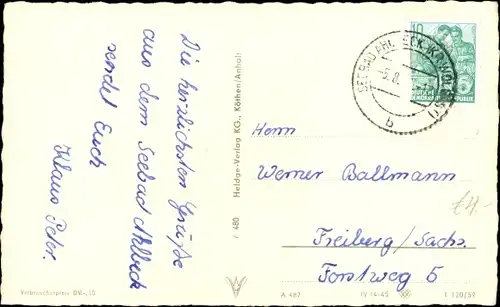 Die herzlichsten Grüße
aus dem Seebad Ahlbeck
sendet Euch
Klaus Peter.
Verbraucherpreis DM -,20
F 480 Heldge-Verlag KG., Köthen/Anhalt
SEEBAD AHLBECK (KR WOLGAST)
-5.8.
b
10
DEUTSCHE
DEMOKRATISCHE REPUBLIK
Herrn
Werner Ballmann
Freiberg/Sachs.
Forstweg 5
£4.-
A 487
IV-14-45
I 120/59